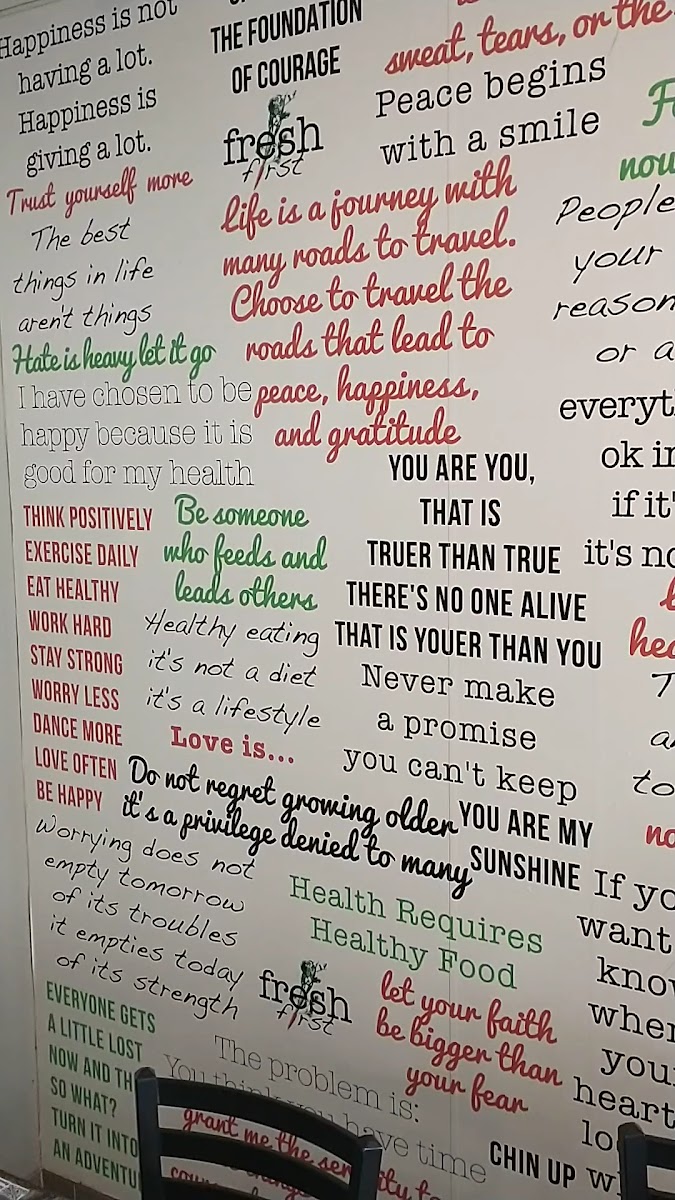 Happiness is not
having a lot.
Happiness is
giving a lot.
Trust yourself more
The best
things in life
aren't things
Hate is heavy let it go
I have chosen to be
happy because it is
good for my health
THINK POSITIVELY
EXERCISE DAILY
EAT HEALTHY
WORK HARD
STAY STRONG
WORRY LESS
DANCE MORE
LOVE OFTEN
BE HAPPY
Worrying does not
empty tomorrow
of its troubles
it empties today
of its strength
EVERYONE GETS
A LITTLE LOST
NOW AND
SO WHAT?
TURN IT INTO
AN
THE FOUNDATION
OF COURAGE
fresh
first
life is a journey with
many roads to travel.
Choose to travel the
roads that lead to
peace, happiness,
and gratitude
Be someone
who feeds and
leads others
Healthy eating
it's not a diet
it's a lifestyle
Love is...
Do not regret growing older
it's a privilege denied to many
Health Requires
Healthy Food
fresh
first
The problem is:
You think you have time
grant me the
sweat, tears, or the
Peace begins
with a smile
YOU ARE YOU,
THAT IS
TRUER THAN TRUE
THERE'S NO ONE ALIVE
THAT IS YOUER THAN YOU
Never make
a promise
you can't keep
YOU ARE MY
SUNSHINE
let your faith
be bigger than
your fear
CHIN UP
People
your
or
ok
if
it's
to
If
want